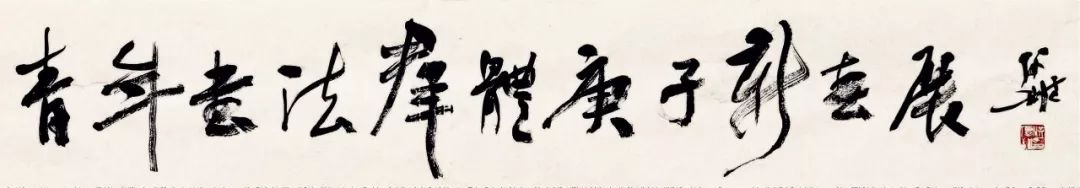 青年书法群體庚子新春展